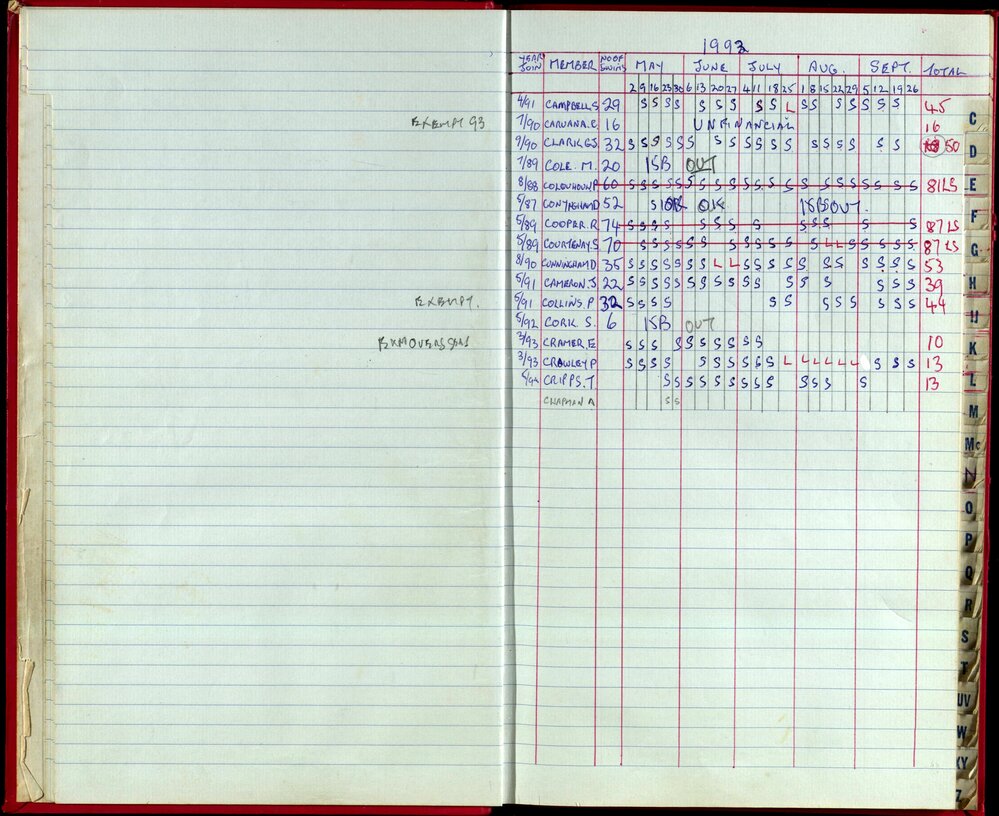 1993
YEAR JOIN MEMBER NO OF SWIMS MAY JUNE JULY AUG. SEPT. TOTAL
2 9 16 23 30 6 13 20 27 4 11 18 25 1 8 15 22 29 5 12 19 26
4/91 CAMPBELL S 29 S S S S S S S S S L S S S S S S S S 45
EXEMPT 93 7/90 CARUANA. C. 16 UNFINANCIAL 16
9/90 CLARK G.S 32 S S S S S S S S S S S S S S S S S S S 50
7/89 COLE. M. 20 ISB OUT
8/88 COLQUHOUN P 60 S S S S S S S S S S S S S S S S S S S S S S 81 LS
5/87 CONYNGHAM D 52 S OK ISB OUT.
5/89 COOPER. R 74 S S S S S S S S S S S S S 87 LS
5/89 COURTENAY. S 70 S S S S S S S S S S S S L L S S S S S 87 LS
8/90 CUNNINGHAM D 35 S S S S S S S L L S S S S S S S S S S S 53
5/91 CAMERON. J 22 S S S S S S S S S S S S S S 39
EXEMPT. 5/91 COLLINS P 32 S S S S S S S S S S S S 44
5/92 CORK S. 6 ISB OUT
3/93 CRAMER. E S S S S S S S S S S 10
3/93 CRAWLEY P S S S S S S S S S S L L L L L L S S S 13
CRIPPS. T S S S S S S S S S S S S S 13
CHAPMAN A S S
C
D
E
F
G
H
IJ
K
L
M
Mc
N
O
P
Q
R
S
T
UV
W
XY
Z